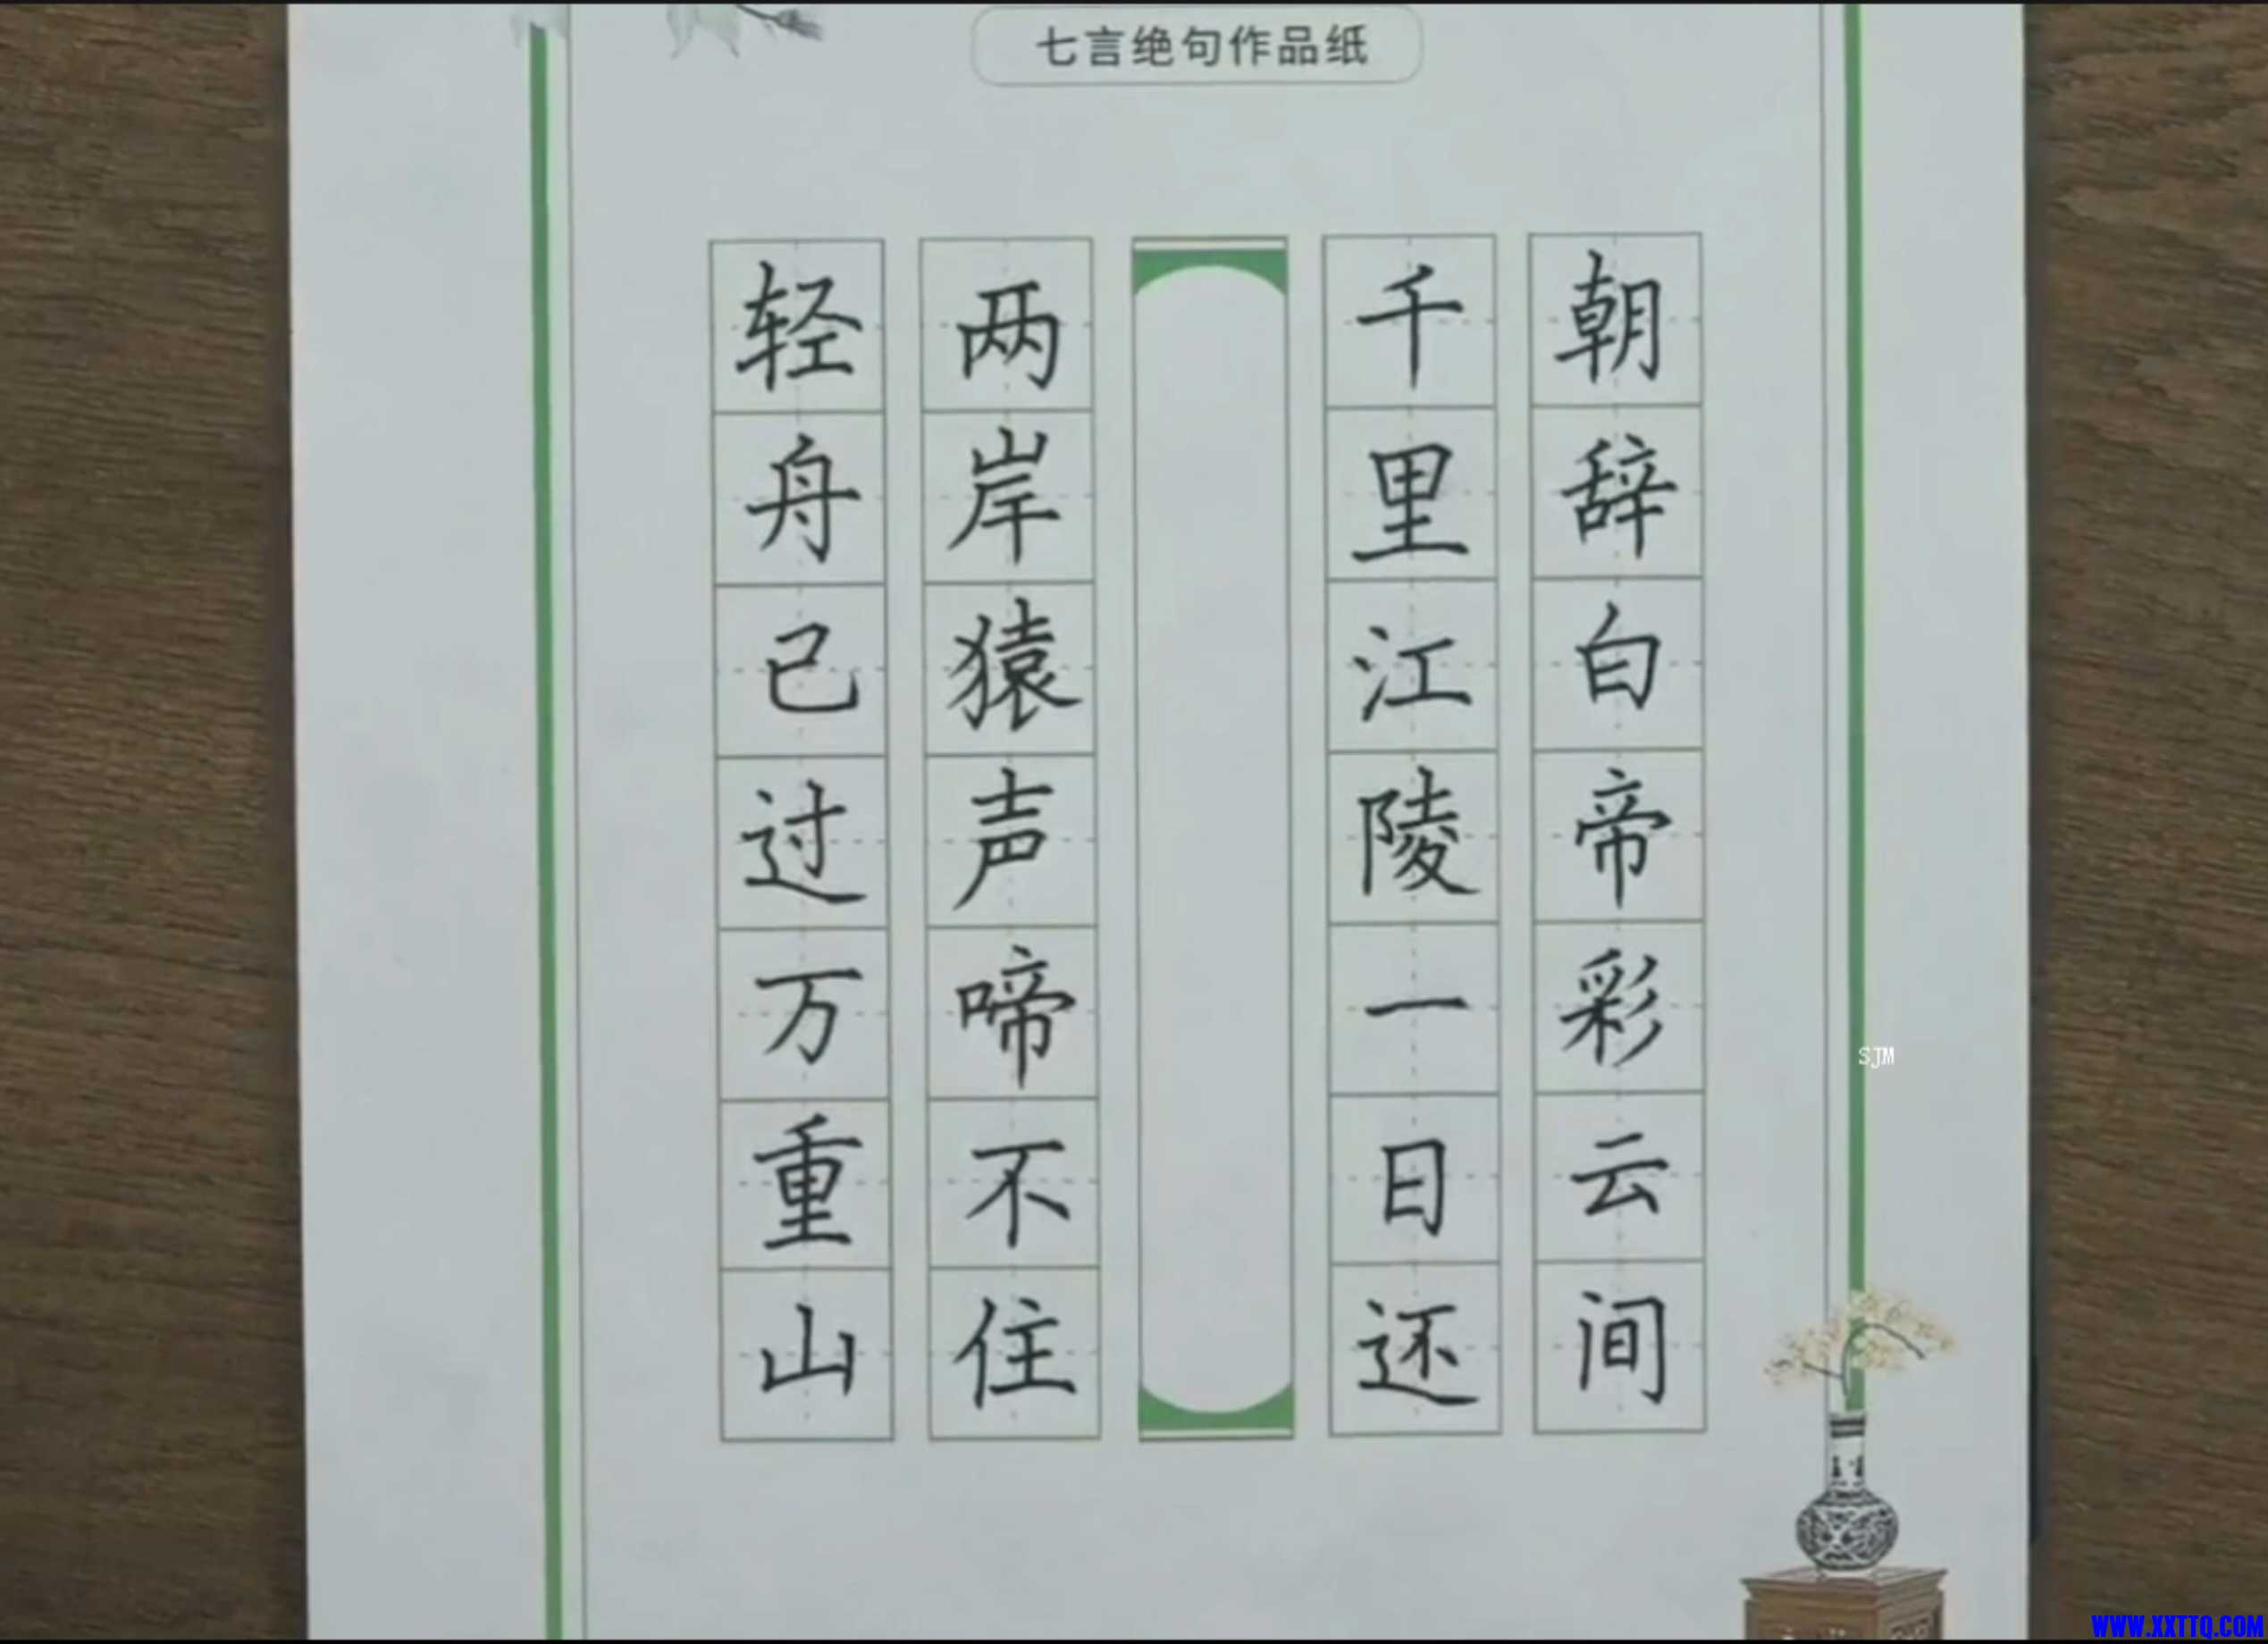 七言绝句作品纸
朝辞白帝彩云间
千里江陵一日还
两岸猿声啼不住
轻舟已过万重山
SJM
WWW.XXTTQ.COM